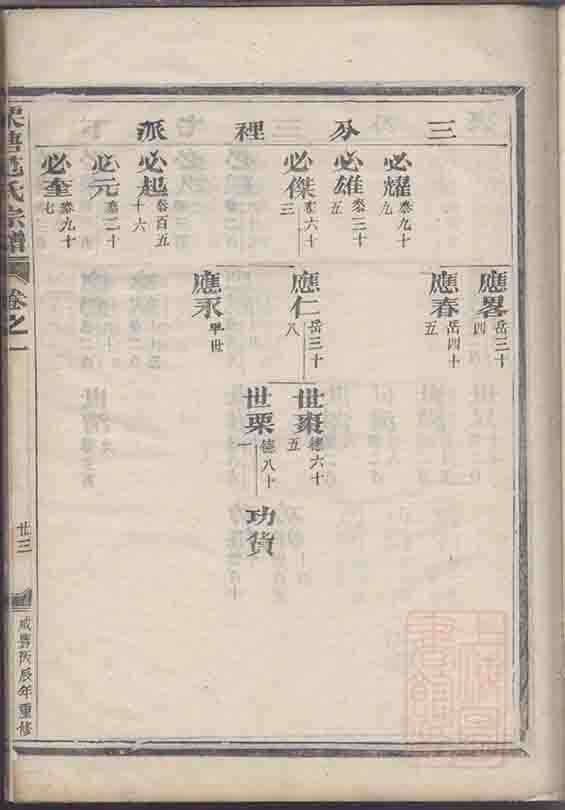 三分裡派
必耀 泰九十九
必雄 泰三十五
必傑 泰六十三
必起 泰百五十六
必元 泰二十
必奎 泰九十七
應畧 岳三十四
應春 岳四十五
應仁 岳三十八
應永 早世
世棗 德六十五
世栗 德八十一
功貨
范氏宗譜
卷之一
廿三
咸豐丙辰年重修